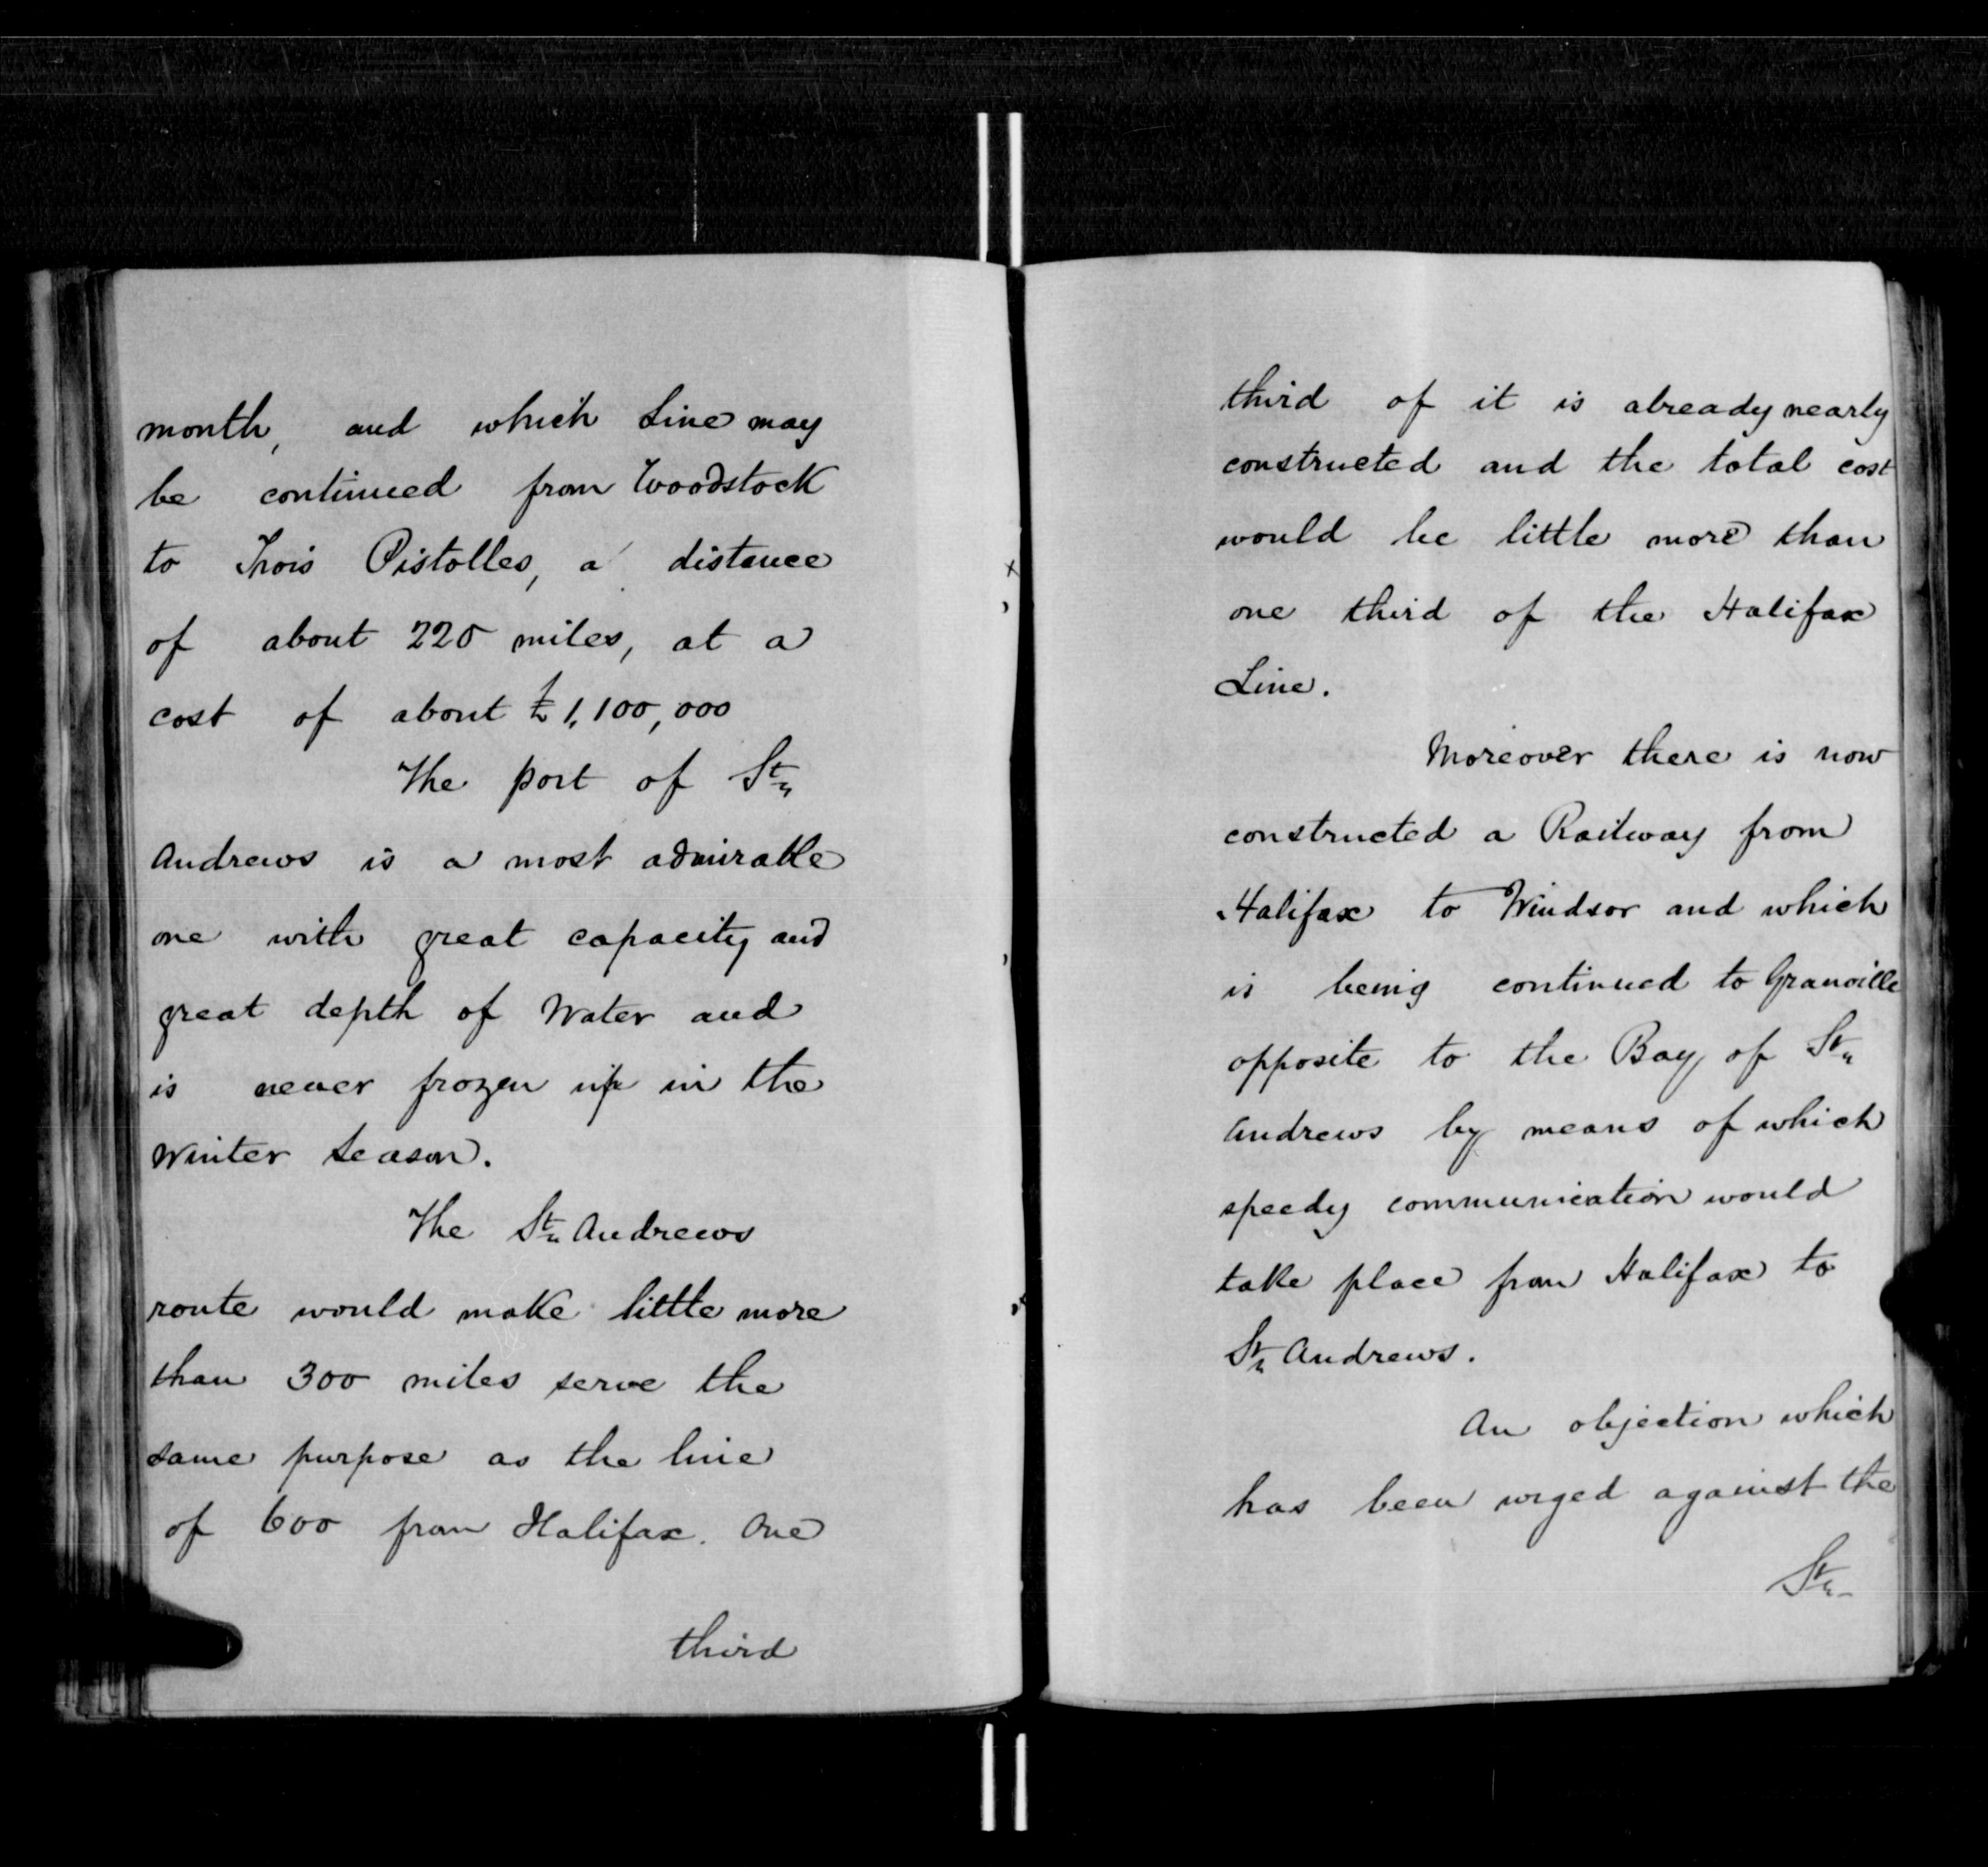 month, and which Line may
be continued from Woodstock
to Trois Pistolles, a distance
of about 220 miles, at a
cost of about £1,100,000
The port of St
Andrews is a most admirable
one with great capacity and
great depth of Water and
is never frozen up in the
Winter Season.
The St Andrews
route would make little more
than 300 miles serve the
same purpose as the line
of 600 from Halifax. One
third
third of it is already nearly
constructed and the total cost
would be little more than
one third of the Halifax
Line.
Moreover there is now
constructed a Railway from
Halifax to Windsor and which
is being continued to Granville
opposite to the Bay of St
Andrews by means of which
speedy communication would
take place from Halifax to
St Andrews.
An objection which
has been urged against the
St